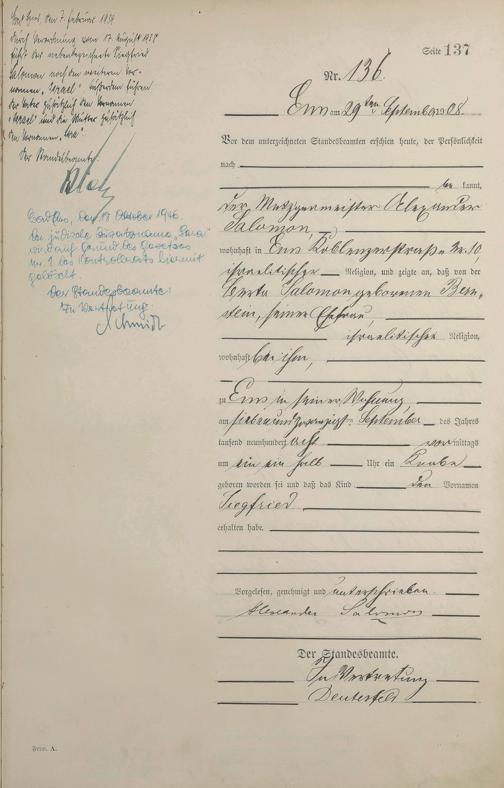 Bad Ems, den 7. Februar 1939
Durch Verordnung vom 17. August 1938
führt der nebenbezeichnete Siegfried
Salomon noch den weiteren Vor-
namen „Israel“. Außerdem führen
der Vater zusätzlich den Vornamen
„Israel“ und die Mutter zusätzlich
den Vornamen „Sara“
Der Standesbeamte
Bad Ems, den 19. Oktober 1946.
Der jüdische Zusatzname „Sara“
wird auf Grund des Gesetzes
Nr. 1 des Kontrollrats hiermit
gelöscht.
Der Standesbeamte:
In Vertretung:
Schmidt
Seite 137
Nr. 136.
Ems am 29 ten September 1908.
Vor dem unterzeichneten Standesbeamten erschien heute, der Persönlichkeit
nach
be kannt,
der Metzgermeister Alexander
Salomon,
wohnhaft in Ems Koblenzerstraße Nr. 10,
israelitischer Religion, und zeigte an, daß von der
Berta Salomon geborenen Bern-
stein, seiner Ehefrau,
israelitischer Religion,
wohnhaft bei ihm,
zu Ems in seiner Wohnung
am siebenundzwanzigsten September des Jahres
tausend neunhundert acht vor mittags
um ein ein halb Uhr ein Knabe
geboren worden sei und daß das Kind den Vornamen
Siegfried
erhalten habe.
Vorgelesen, genehmigt und unterschrieben.
Alexander Salomon
Der Standesbeamte.
In Vertretung
Form. A.